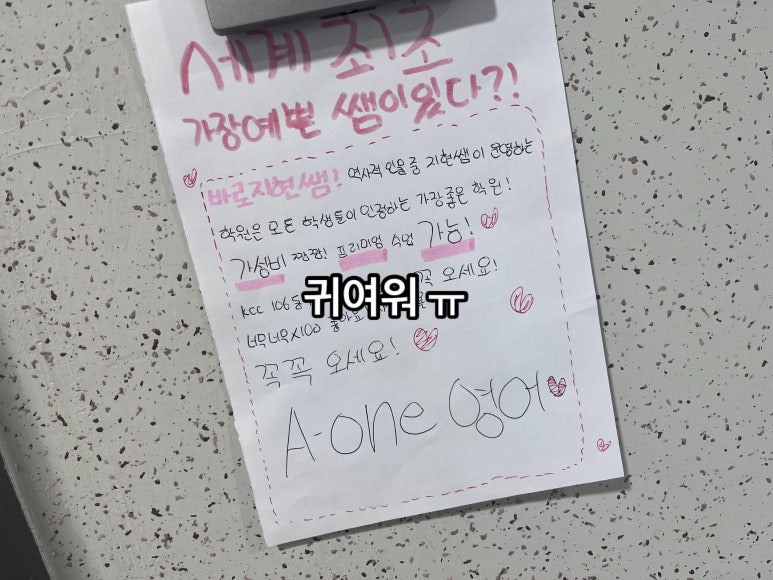 세계 최초
가장 예쁜 쌤이 있다?!
바로지현쌤! 역사적 인물 중 지현쌤이 운영하는
학원은 모든 학생들이 인정하는 가장 좋은 학원!
가성비 짱짱! 프리미엄 수업 가능!
KCC 106동 꼭 오세요!
귀여워 ㅠ
너무너무x100 좋아요
꼭꼭 오세요!
A-one 영어